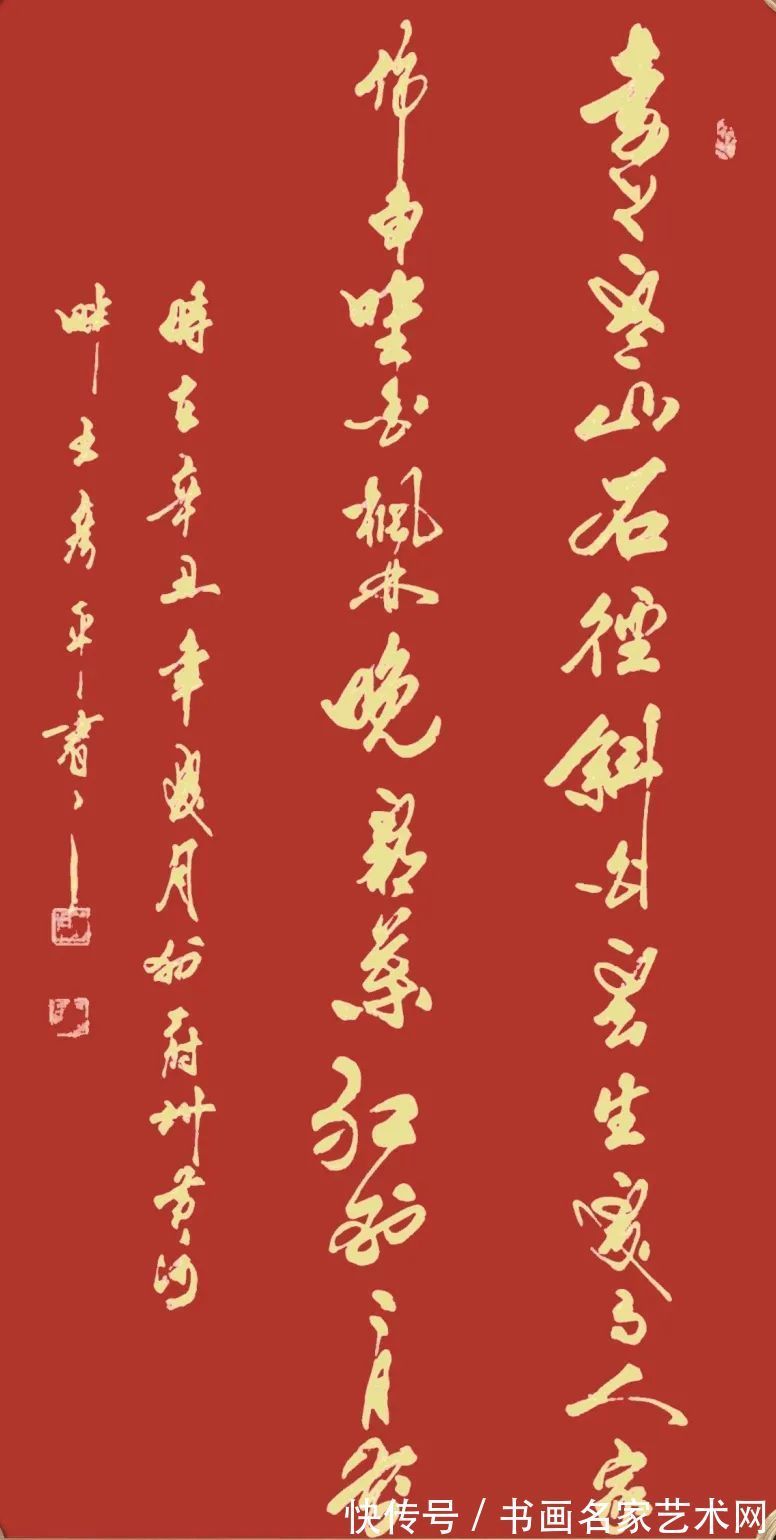 遠上寒山石徑斜白雲生處有人家
停車坐愛楓林晚霜葉紅於二月花
時在辛丑年月於府州黄河
畔王平書
快传号 / 书画名家艺术网